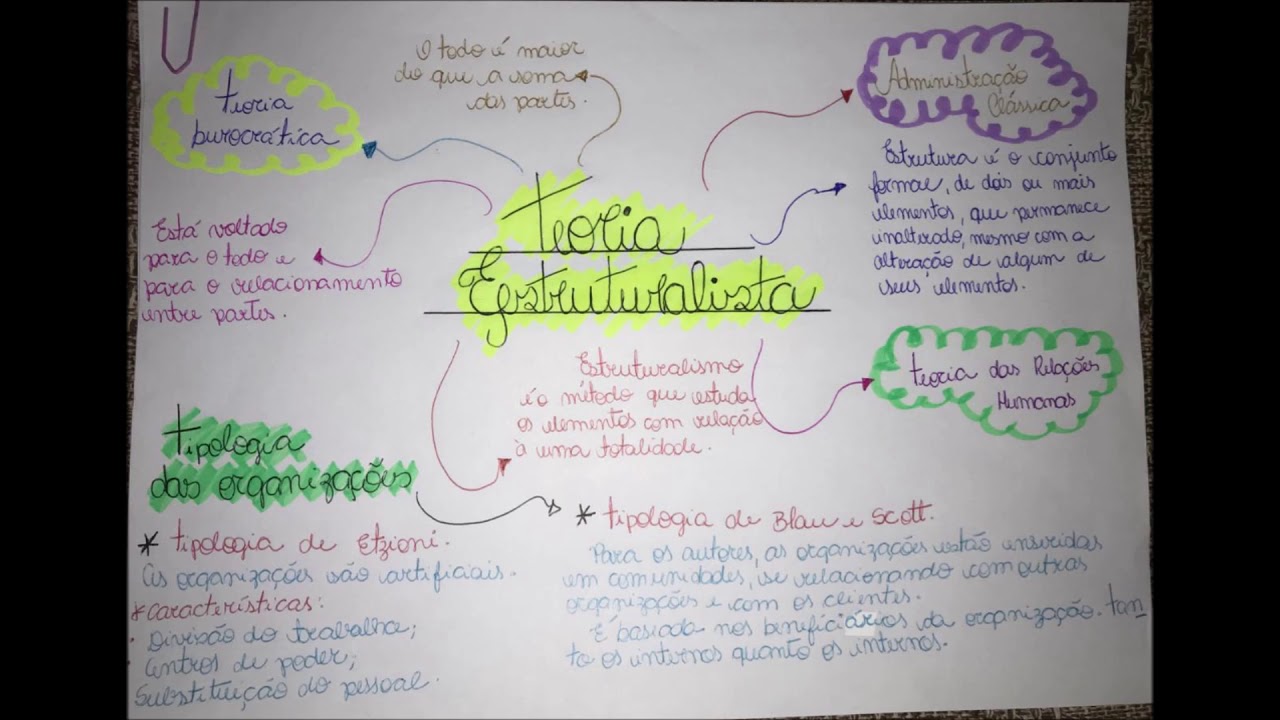 Teoria
Estruturalista
O todo é maior
do que a soma
das partes.
Teoria
burocrática
Está voltado
para o todo e
para o relacionamento
entre partes.
Administração
Clássica
Estrutura é o conjunto
formal, de dois ou mais
elementos, que permanece
inalterado, mesmo com a
alteração de algum de
seus elementos.
Teoria das Relações
Humanas
Estruturalismo
é o método que estuda
os elementos com relação
à uma totalidade.
Tipologia
das organizações
* Tipologia de Etzioni.
As organizações são artificiais.
* Características:
· Divisão do trabalho;
· Centros de poder;
Substituição do pessoal.
* Tipologia de Blau e Scott.
Para os autores, as organizações estão inseridas
em comunidades, se relacionando com outras
organizações e com os clientes.
É basiada nos beneficiários da organização. Tan
to os internos quanto os internos.